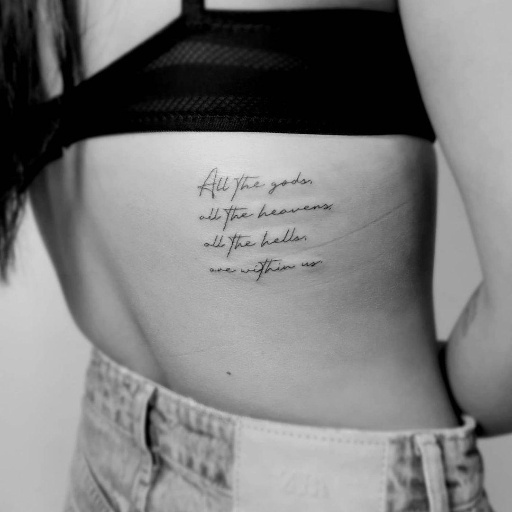 All the gods,
all the heavens,
all the hells,
are within us